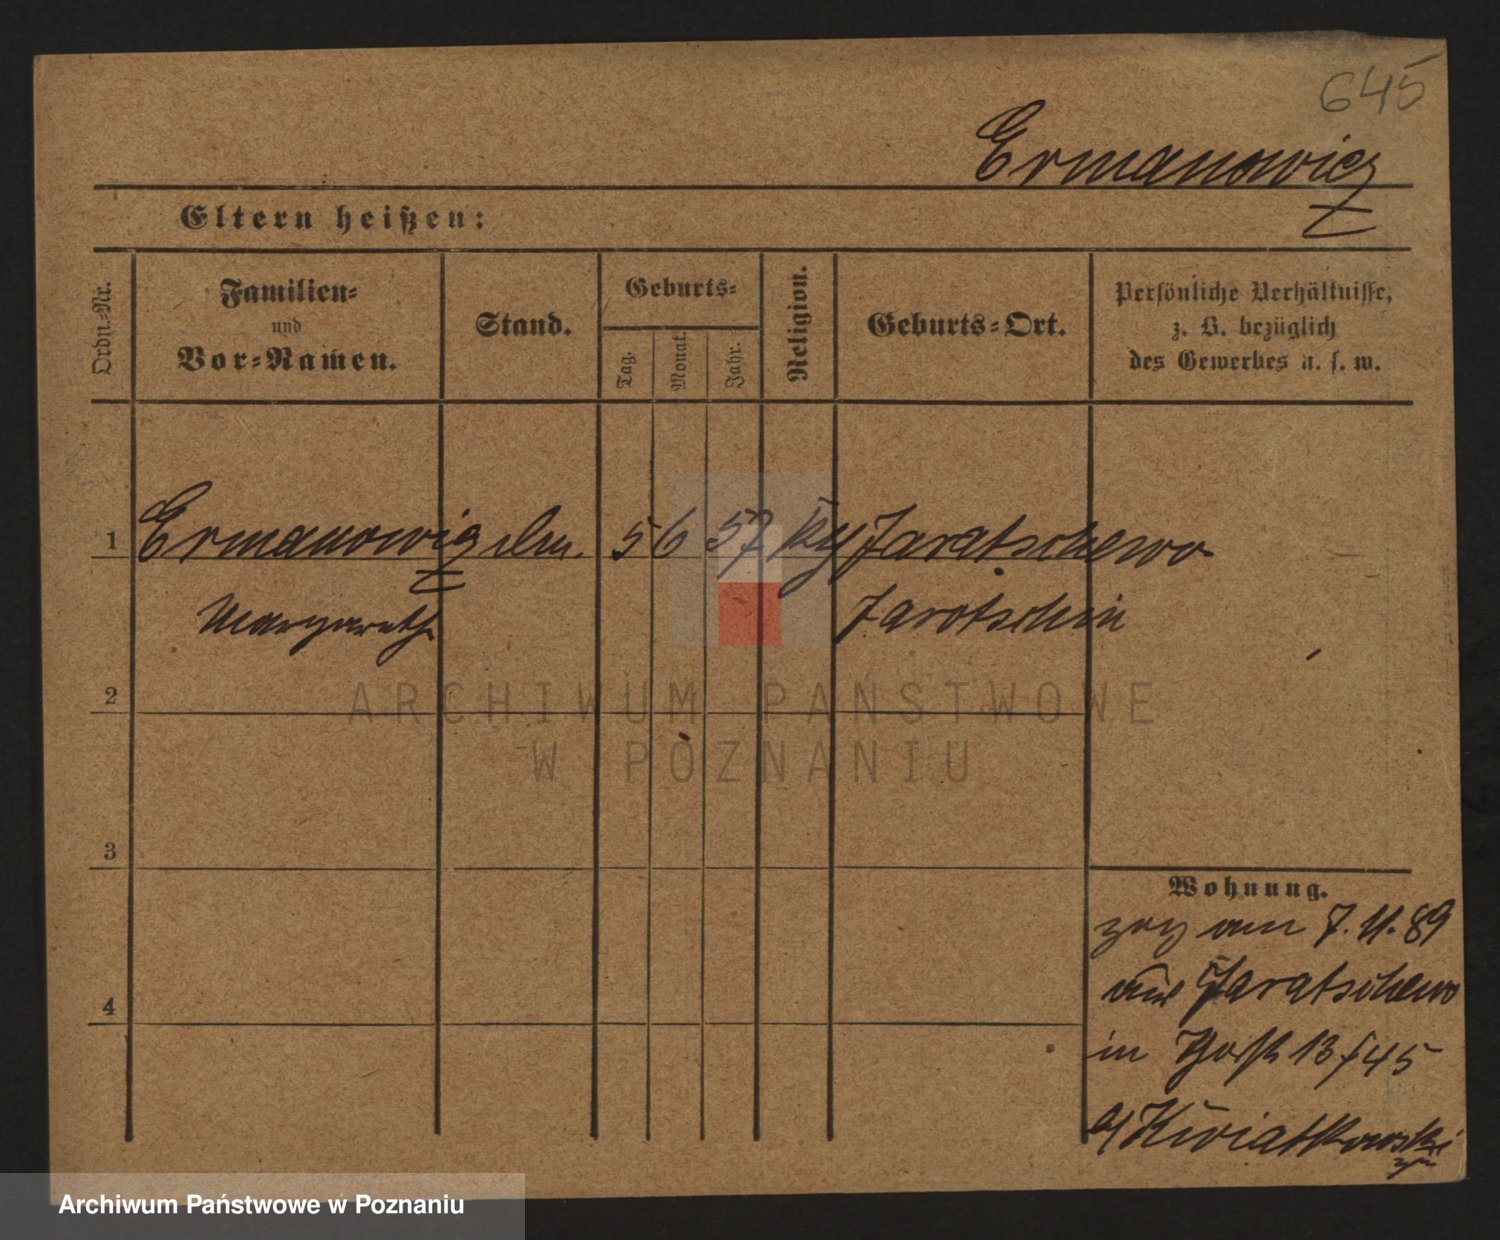 645
Ermanowicz
Eltern heißen:
Ordn.-Nr.
Familien-
und
Vor-Namen.
Stand.
Geburts-
Tag.
Monat.
Jahr.
Religion.
Geburts-Ort.
Persönliche Verhältnisse,
z. B. bezüglich
des Gewerbes u. s. w.
1 Ermanowicz 5 6 57 Jaratschewo
Margareth Jarotschin
2
3
4
ARCHIWUM PAŃSTWOWE
W POZNANIU
Wohnung.
zog am 7. 11. 89
aus Jaratschewo
in 13/45
Kwiatkowski
Archiwum Państwowe w Poznaniu